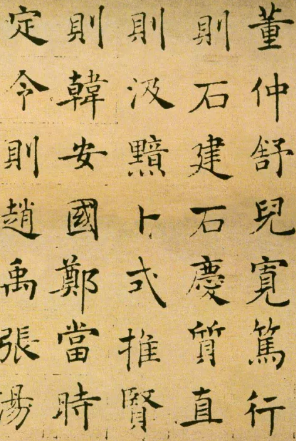 董仲舒兒寬篤行
則石建石慶質直
則汲黯卜式推賢
則韓安國鄭當時
定令則趙禹張湯